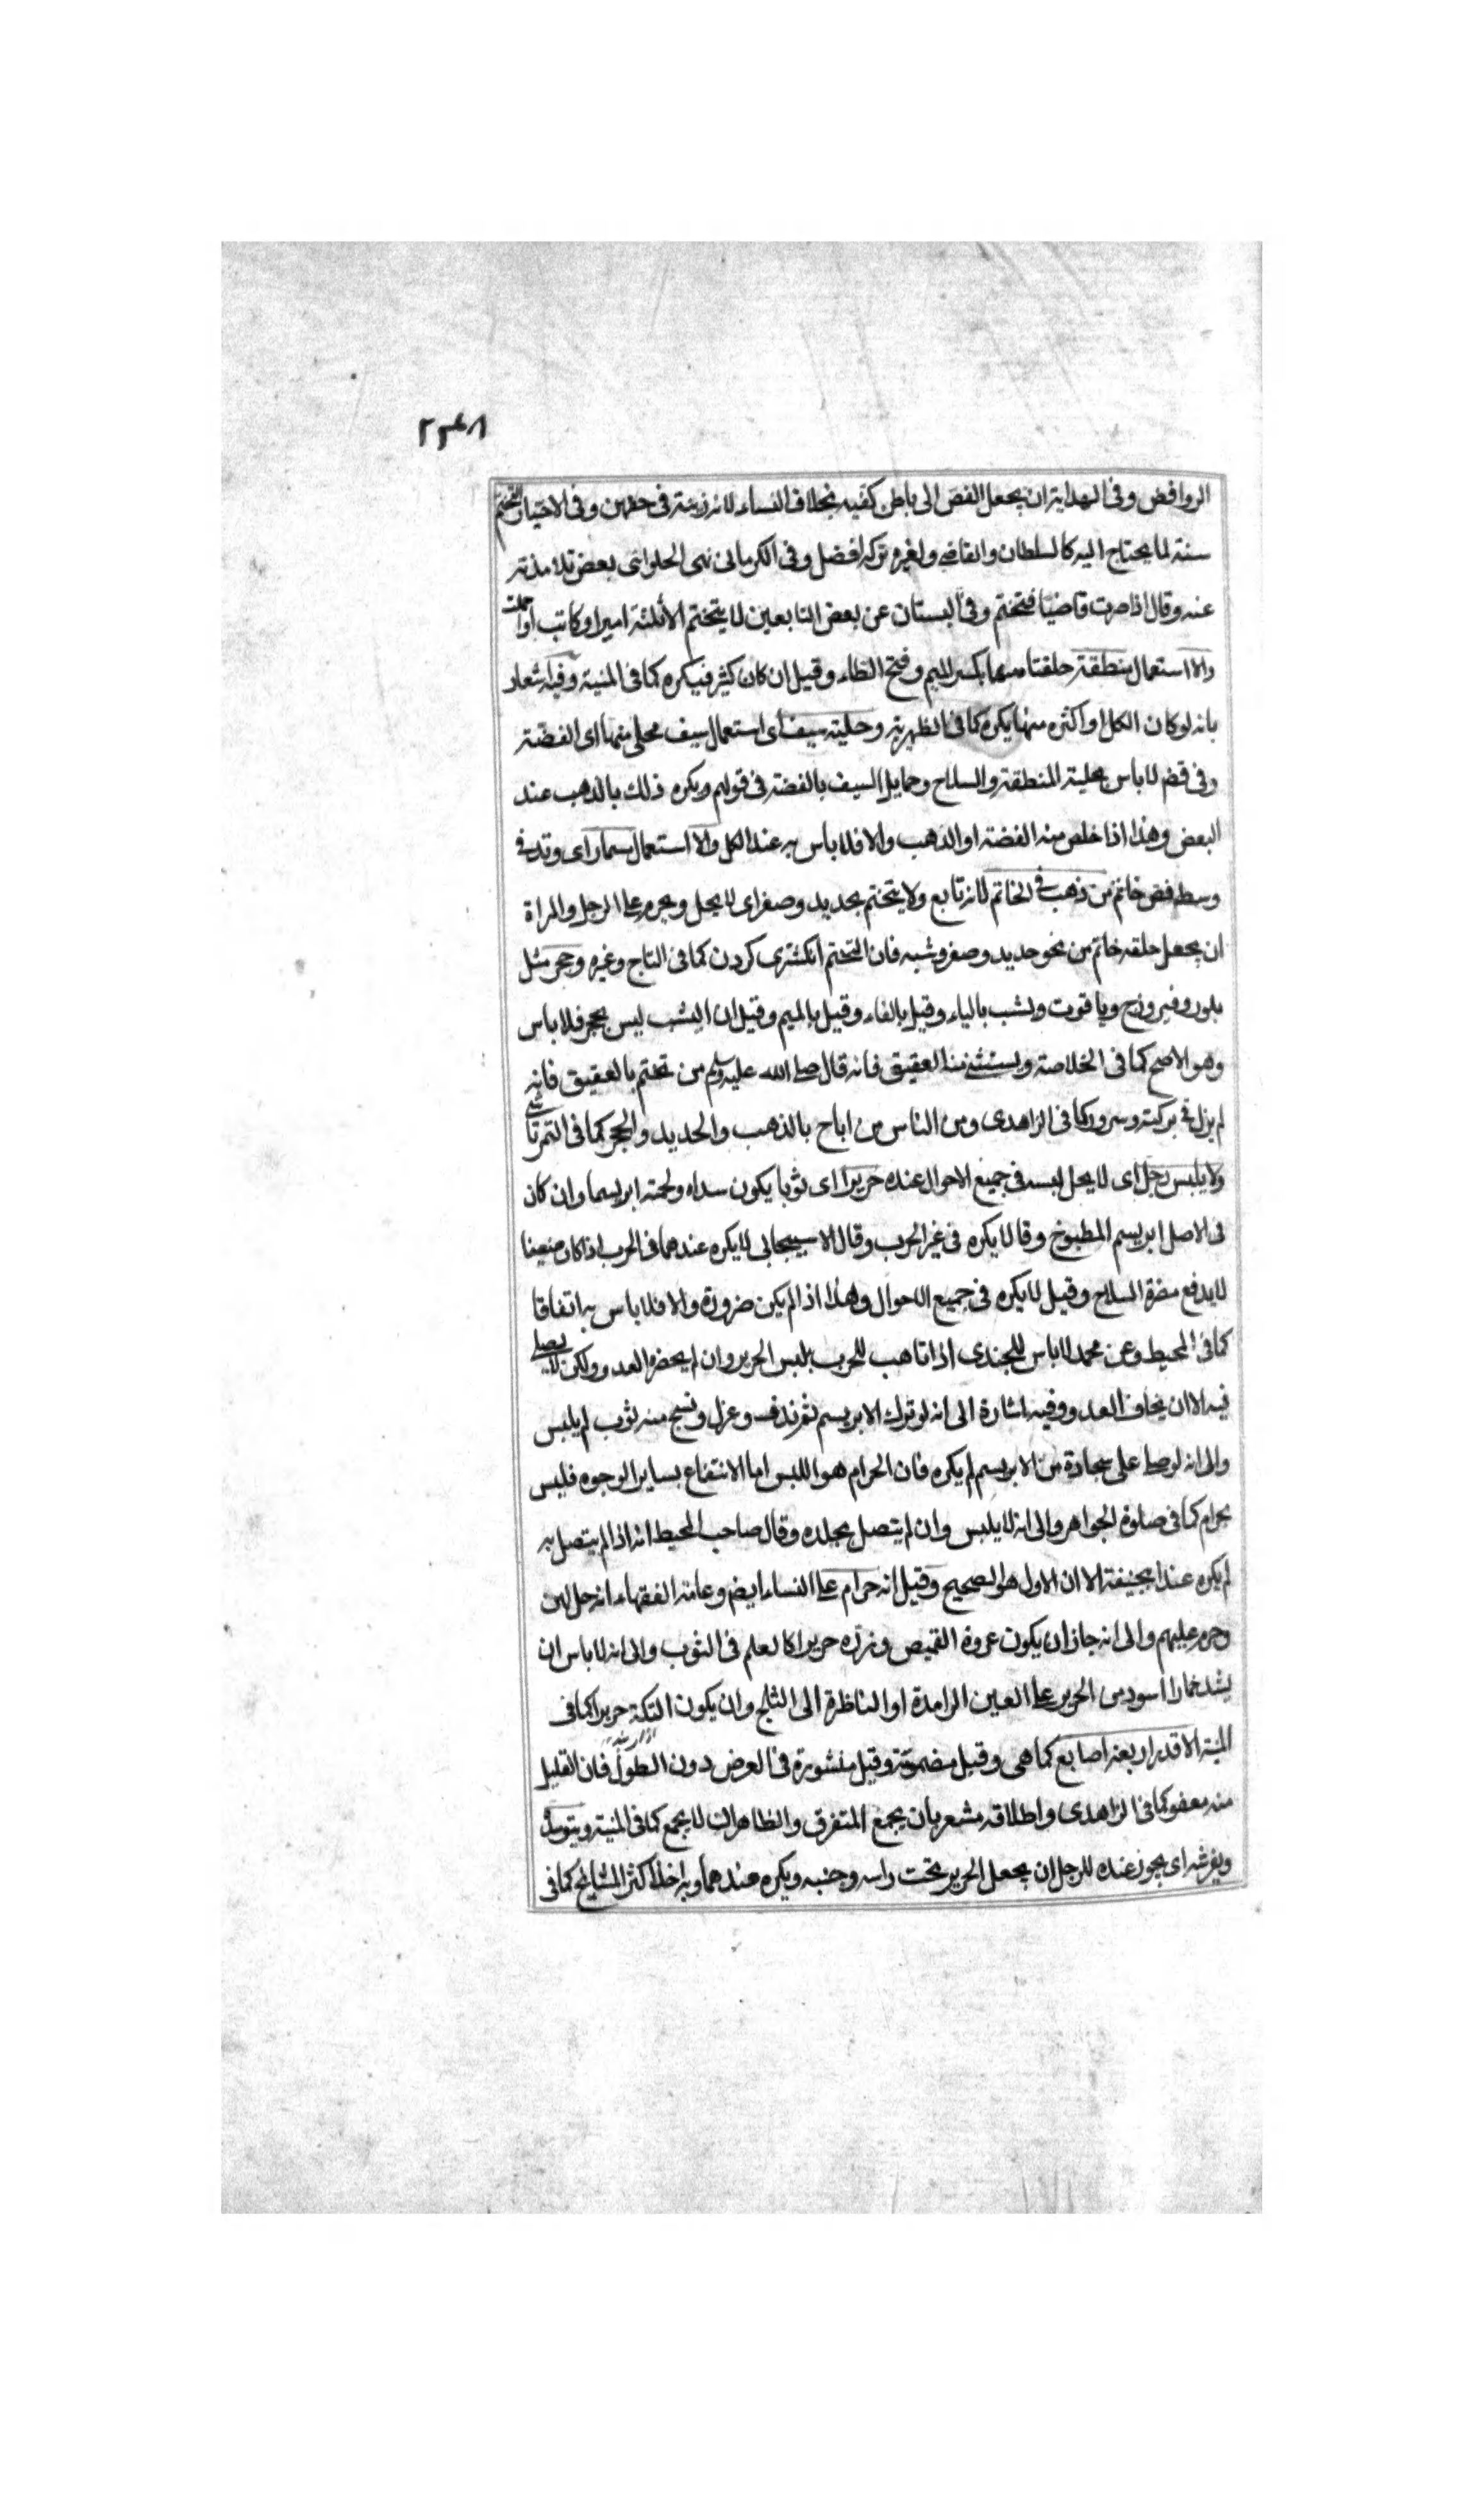 ٢٣٤٨
الروافض وفى الهداية ان يجعل الفص الى باطن كفيه بخلاف النساء لانه زينة فى حقهن وفى الاختيار التختم
سنة لما يحتاج اليه كالسلطان والقاضى ولغيره تركه افضل وفى الكرمانى نهى الحلوانى بعض تلامذته
عنه وقال اذا صرت قاضيا فتختم وفى البستان عن بعض التابعين لا يتختم الا ثلثة امير او كاتب او احمق
والا استعمال منطقة حلقتا منهما بكسر الميم وفتح الطاء وقيل ان كان كثير فيكره كما فى المنية وفيه اشعار
بانه لو كان الكل او اكثره منها يكره كما فى الظهيرية وحلية سيف اى استعمال سيف محلى منها اى الفضة
وفى قضـ لا باس بحلية المنطقة والسلاح وحمايل السيف بالفضة فى قولهم ويكره ذلك بالذهب عند
البعض وهذا اذا خلص منه الفضة او الذهب والا فلا باس به عند الكل والا استعمال مسمار اى وتد فى
وسط فص خاتم من ذهب فى الخاتم لانه تابع ولا يتختم بحديد وصفر اى لا يحل ويحرم على الرجل والمراة
ان يجعل حلقه خاتم من نحو حديد وصفر وشبه فان التختم انكشترى كردن كما فى التاج وغيره وحجر مثل
بلور وفيروزج وياقوت ويشب بالياء وقيل بالفاء وقيل بالميم وقيل ان اليشب ليس بحجر فلا باس
وهو الاصح كما فى الخلاصة ويستثنى منه العقيق فانه قال صلى الله عليه وسلم من تختم بالعقيق فانه
لم يزل فى بركة وسرور كما فى الزاهدى ومن الناس من اباح بالذهب والحديد والحجر كما فى التمرتاشى
ولا يلبس رجل اى لا يحل لبسه فى جميع الاحوال عنده حريرا اى ثوبا يكون سداه ولحمته ابريسما وان كان
فى الاصل ابريسم المطبوخ وقالا يكره فى غير الحرب وقال الاسبيجابى لا يكره عندهما فى الحرب اذا كان صفيقا
لا يدفع مضرة السلاح وقيل لا يكره فى جميع الاحوال وهذا اذا لم يكن ضرورة والا فلا باس به اتفاقا
كما فى المحيط وعن محمد لا باس للجندى اذا تاهب للحرب بلبس الحرير وان لم يحضر العدو ولكن لا يصلى
فيه الا ان يخاف العدو وفيه اشارة الى انه لو ترك الابريسم ثم ندف وغزل ونسج منه ثوب لم يلبس
والى انه لو صلى على سجادة من الابريسم لم يكره فان الحرام هو اللبس اما الانتفاع بساير الوجوه فليس
بحرام كما فى صلوة الجواهر والى انه لا يلبس وان لم يتصل بجلده وقال صاحب المحيط انه اذا لم يتصل به
لم يكره عند ابيحنيفة الا ان الاول هو الصحيح وقيل انه حرام على النساء ايضـ وعامة الفقهاء انه حل لهن
وحرم عليهم والى انه جاز ان يكون عروة القميص وزره حريرا كالعلم فى الثوب والى انه لا باس ان
يشد خمارا اسود من الحرير على العين الرامدة او الناظرة الى الثلج وان يكون التكة حريرا كما فى
المنية الا قدر اربعة اصابع كما هى وقيل مضمومة وقيل منشورة فى العرض دون الطول فان القليل
منه معفو كما فى الزاهدى واطلاقه مشعر بان يجمع المتفرق والظاهر انه لا يجمع كما فى المنية ويتوسد
ويفرشه اى يجوز عنده للرجل ان يجعل الحرير تحت راسه وجنبه ويكره عندهما وبه اخذ اكثر المشايخ كما فى